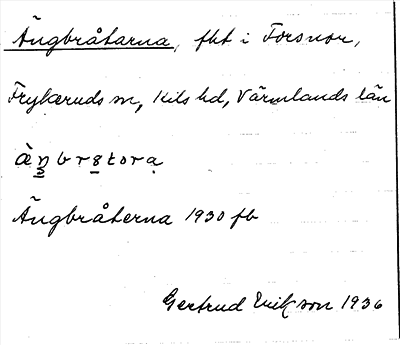 Ängbråtarna, fht i Forsnor,
Frykeruds sn, Kils hd, Värmlands län
Ängbråterna 1930 fb
Gertrud Erikson 1936